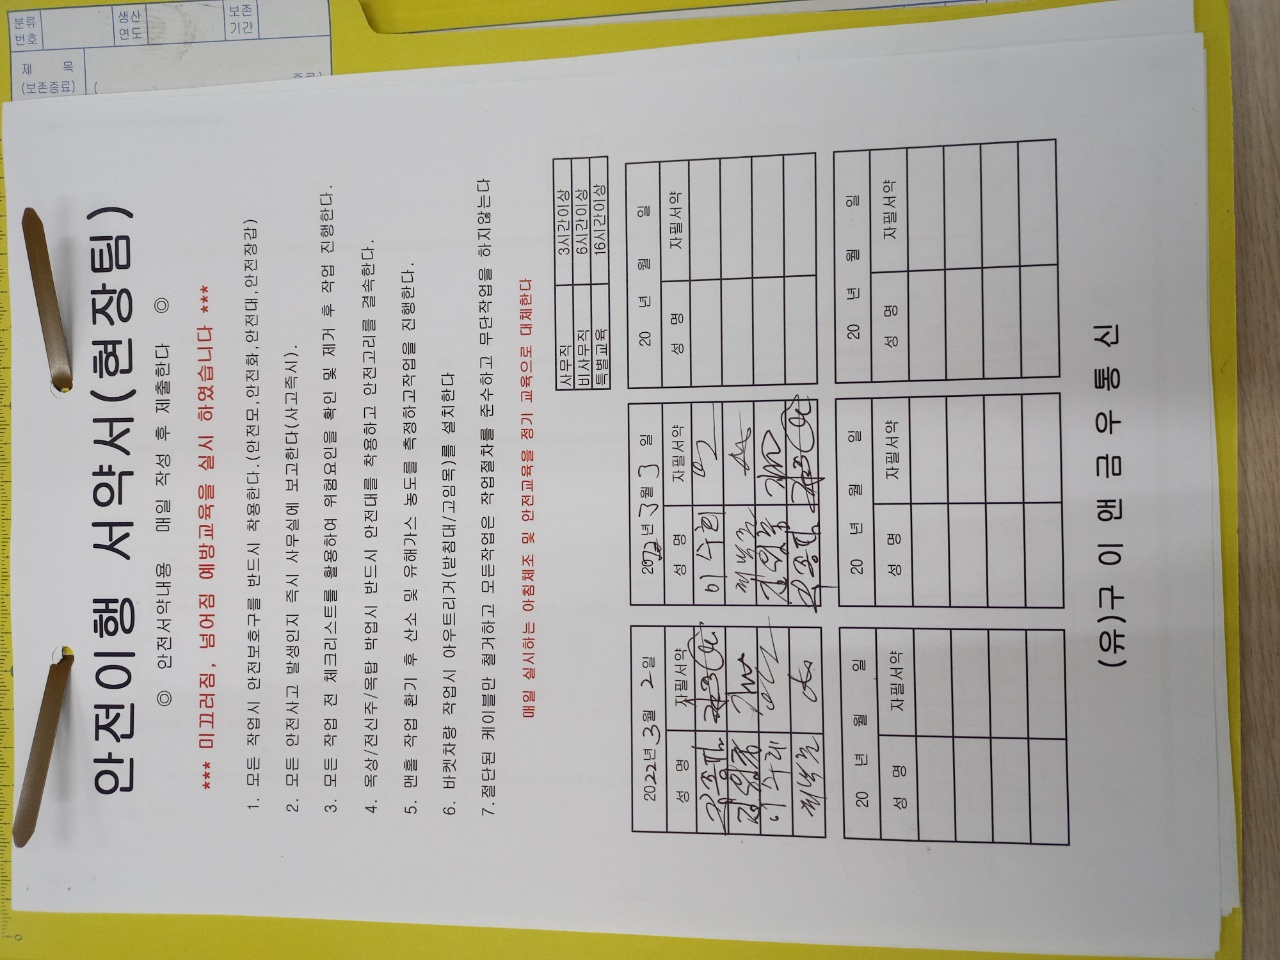 분류
번호
생산
연도
보존
기간
제 목
(보존종료)
안전이행 서약서(현장팀)
◎ 안전서약내용 매일 작성 후 제출한다 ◎
*** 미끄러짐, 넘어짐 예방교육을 실시 하였습니다 ***
1. 모든 작업시 안전보호구를 반드시 착용한다.(안전모,안전화,안전대,안전장갑)
2. 모든 안전사고 발생인지 즉시 사무실에 보고한다(사고즉시).
3. 모든 작업 전 체크리스트를 활용하여 위험요인을 확인 및 제거 후 작업 진행한다.
4. 옥상/전신주/옥탑 박업시 반드시 안전대를 착용하고 안전고리를 결속한다.
5. 맨홀 작업 환기 후 산소 및 유해가스 농도를 측정하고작업을 진행한다.
6. 바켓차량 작업시 아우트리거(받침대/고임목)를 설치한다
7.절단된 케이블만 철거하고 모든작업은 작업절차를 준수하고 무단작업을 하지않는다
매일 실시하는 아침체조 및 안전교육을 정기 교육으로 대체한다
사무직 3시간이상
비사무직 6시간이상
특별교육 16시간이상
2022년 3월 2일
성 명 자필서약
이수래
2022년 3월 3일
성 명 자필서약
이수리
20 년 월 일
성 명 자필서약
20 년 월 일
성 명 자필서약
20 년 월 일
성 명 자필서약
20 년 월 일
성 명 자필서약
(유)구이앤금우통신